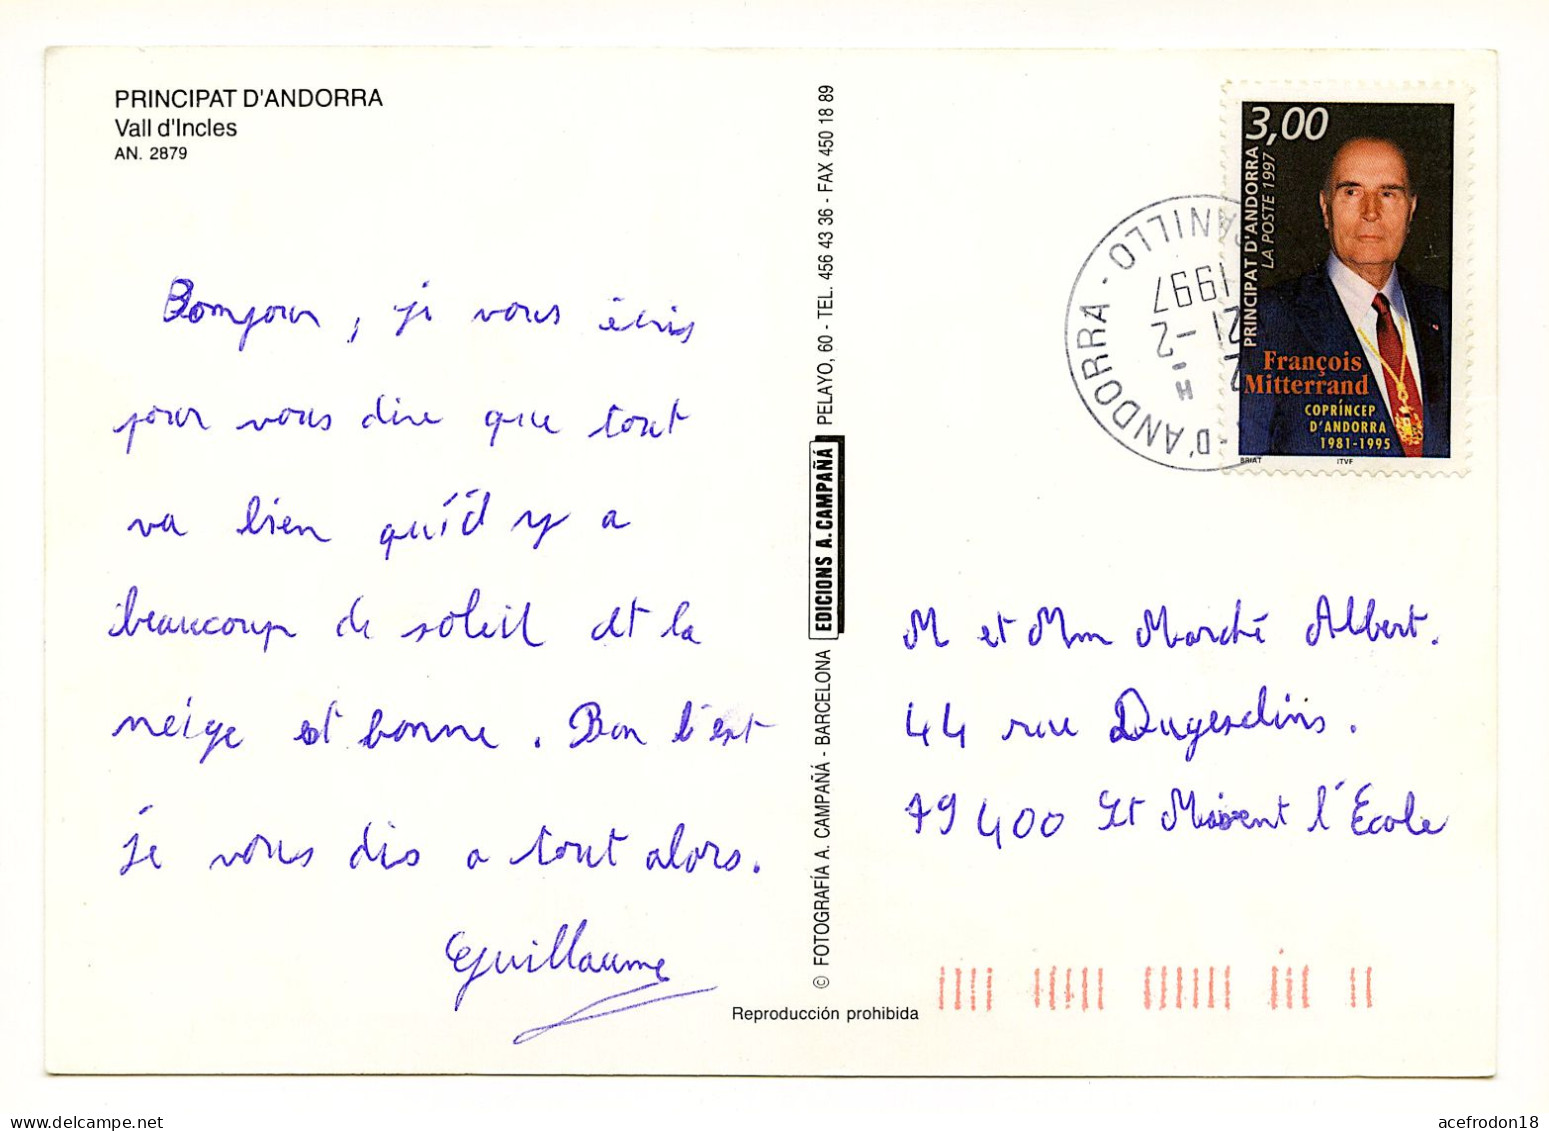 PRINCIPAT D'ANDORRA
Vall d'Incles
AN. 2879
Bonjour, je vous écris
pour vous dire que tout
va bien qu'il y a
beaucoup de soleil et la
neige est bonne. Bon c'est
je vous dis a tout alors.
Guillaume
© FOTOGRAFÍA A. CAMPAÑÁ - BARCELONA EDICIONS A. CAMPAÑÁ PELAYO, 60 - TEL. 456 43 36 - FAX 450 18 89
Reproducción prohibida
3,00
PRINCIPAT D'ANDORRA
LA POSTE 1997
François
Mitterrand
COPRÍNCEP
D'ANDORRA
1981-1995
BRIAT ITVF
D'ANDORRA
21 -2
1997
M et Mm Marché Albert.
44 rue Dugesclins.
79400 St Maixent l'Ecole
www.delcampe.net
acefrodon18